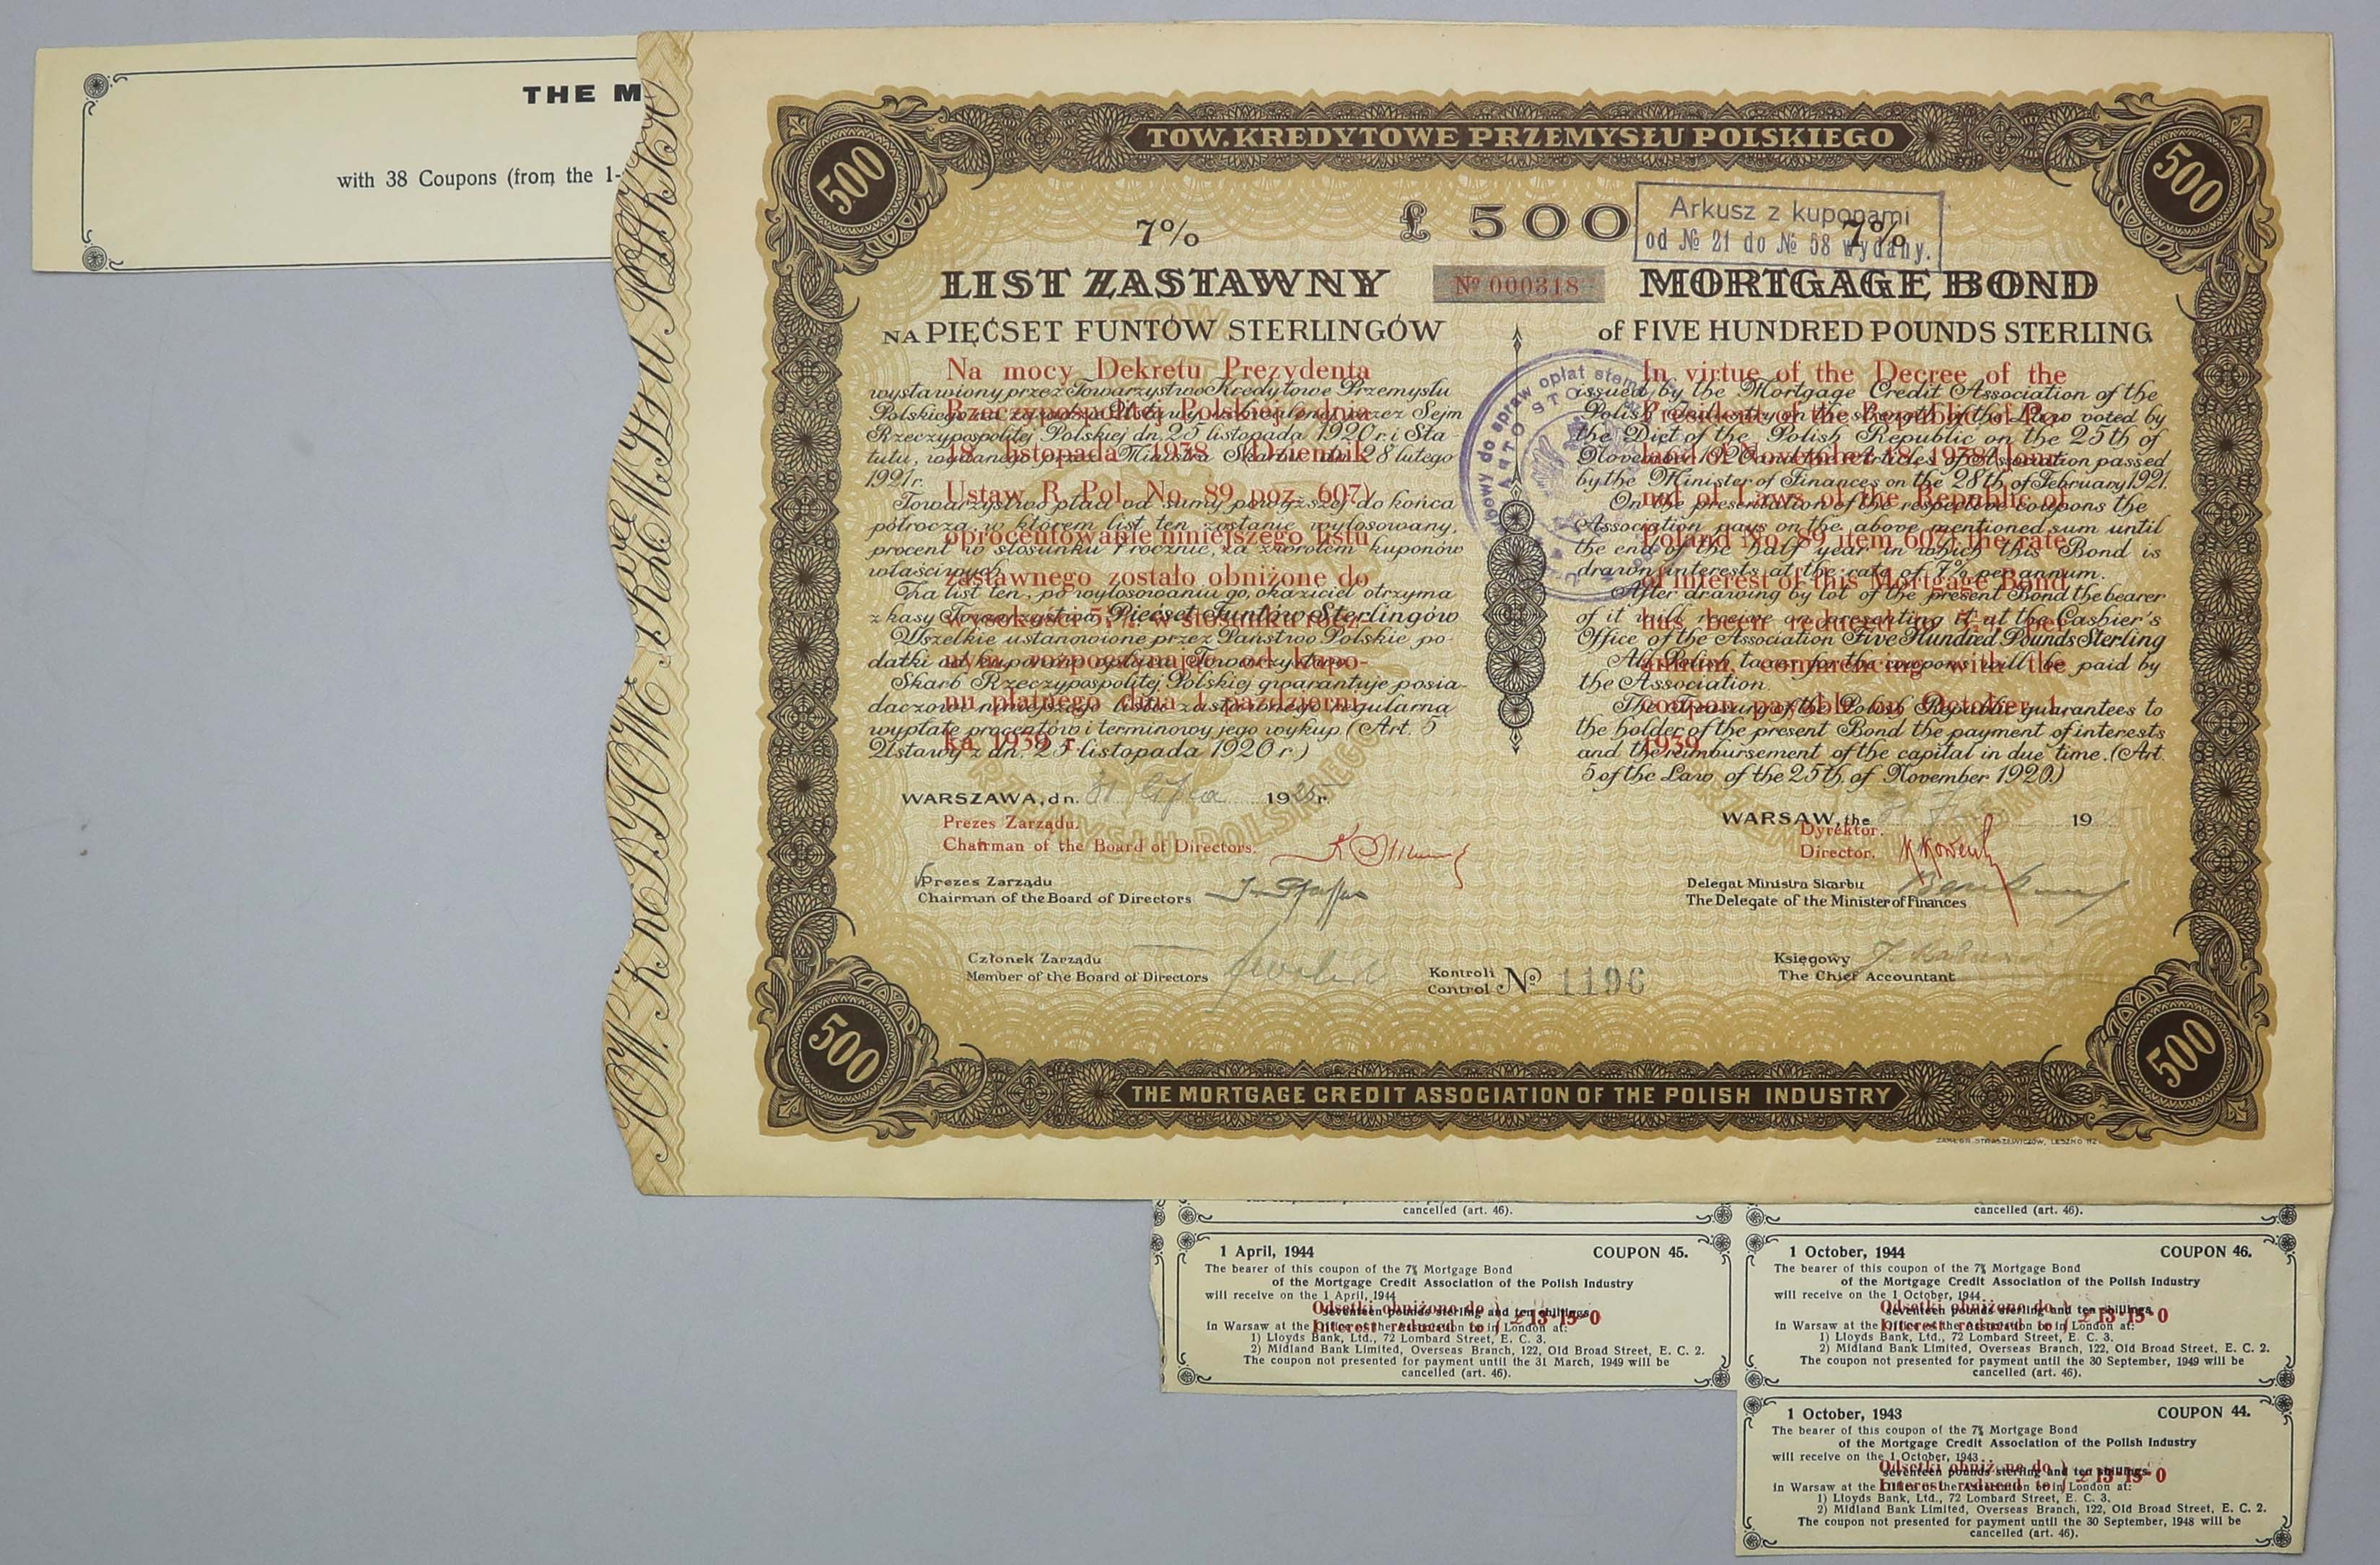 THE M
with 38 Coupons (from the 1-
TOW. KREDYTOWE PRZEMYSŁU POLSKIEGO
TOW. KREDYTOWE PRZEMYSŁU POLSKIEGO
500
500
7%
£ 500
7%
Arkusz z kuponami
od № 21 do № 58 wydany.
LIST ZASTAWNY
Nº 000318
MORTGAGE BOND
NA PIĘĆSET FUNTÓW STERLINGÓW
of FIVE HUNDRED POUNDS STERLING
Na mocy Dekretu Prezydenta
wystawiony przez Towarzystwo Kredytowe Przemysłu
Rzeczypospolitej Polskiej z dnia
Rzeczypospolitej Polskiej dn. 25 listopada 1920 r. i Sta-
18 listopada 1938 (Dziennik
1921 r.
Ustaw R. Pol. No. 89 poz. 607)
Towarzystwo płaci od sumy powyższej do końca
półrocza, w którem list ten zostanie wylosowany,
oprocentowanie niniejszego listu
procent w stosunku 7 rocznie, za zwrotem kuponów
właściwych.
zastawnego zostało obniżone do
Na list ten, po wylosowaniu go, okaziciel otrzyma
z kasy Towarzystwa Pięćset Funtów Sterlingów
wysokości 5½% w stosunku rocz-
Wszelkie ustanowione przez Państwo Polskie po-
datki od kuponów opłaca Towarzystwo.
nym, rozpoczynając od kupo-
Skarb Rzeczypospolitej Polskiej gwarantuje posia-
daczowi niniejszego listu zastawnego regularną
nu płatnego dnia 1 październi-
wypłatę procentów i terminowy jego wykup. (Art. 5
ka 1939 r.
Ustawy z dn. 25 listopada 1920 r.)
In virtue of the Decree of the
issued by the Mortgage Credit Association of the
President of the Republic of Po-
the Diet of the Polish Republic on the 25th of
land of November 18, 1938 (Jour-
November 1920 and the Articles of Association passed
by the Minister of Finances on the 28th of February 1921.
nal of Laws of the Republic of
On the presentation of the respective coupons the
Association pays on the above mentioned sum until
Poland No. 89 item 607) the rate
the end of the half year in which this Bond is
drawn interests at the rate of 7% per annum.
of interest of this Mortgage Bond
After drawing by lot of the present Bond the bearer
of it will receive on presenting it at the Cashier's
has been reduced to 5½% per
Office of the Association Five Hundred Pounds Sterling
All Polish taxes for the coupons will be paid by
annum, commencing with the
the Association.
The Treasury of the Polish Republic guarantees to
coupon payable on October 1
the holder of the present Bond the payment of interests
1939.
and the reimbursement of the capital in due time. (Art.
5 of the Law of the 25th of November 1920.)
WARSZAWA, dn. 31 lipca 1925 r.
WARSAW, the 19
Prezes Zarządu.
Chairman of the Board of Directors.
Dyrektor.
Director.
Prezes Zarządu
Chairman of the Board of Directors
Delegat Ministra Skarbu
The Delegate of the Minister of Finances
Członek Zarządu
Member of the Board of Directors
Kontroli
Control № 1196
Księgowy
The Chief Accountant
500
500
THE MORTGAGE CREDIT ASSOCIATION OF THE POLISH INDUSTRY
cancelled (art. 46).
cancelled (art. 46).
1 April, 1944 COUPON 45.
The bearer of this coupon of the 7% Mortgage Bond
of the Mortgage Credit Association of the Polish Industry
will receive on the 1 April, 1944
seventeen pounds sterling and ten shillings
Odsetki obniżone do
Interest reduced to } £ 13-15-0
in Warsaw at the Office of the Association or in London at:
1) Lloyds Bank, Ltd., 72 Lombard Street, E. C. 3.
2) Midland Bank Limited, Overseas Branch, 122, Old Broad Street, E. C. 2.
The coupon not presented for payment until the 31 March, 1949 will be
cancelled (art. 46).
1 October, 1944 COUPON 46.
The bearer of this coupon of the 7% Mortgage Bond
of the Mortgage Credit Association of the Polish Industry
will receive on the 1 October, 1944
seventeen pounds sterling and ten shillings
Odsetki obniżone do
Interest reduced to } £ 13-15-0
in Warsaw at the Office of the Association or in London at:
1) Lloyds Bank, Ltd., 72 Lombard Street, E. C. 3.
2) Midland Bank Limited, Overseas Branch, 122, Old Broad Street, E. C. 2.
The coupon not presented for payment until the 30 September, 1949 will be
cancelled (art. 46).
1 October, 1943 COUPON 44.
The bearer of this coupon of the 7% Mortgage Bond
of the Mortgage Credit Association of the Polish Industry
will receive on the 1 October, 1943
seventeen pounds sterling and ten shillings
Odsetki obniżone do
Interest reduced to } £ 13-15-0
in Warsaw at the Office of the Association or in London at:
1) Lloyds Bank, Ltd., 72 Lombard Street, E. C. 3.
2) Midland Bank Limited, Overseas Branch, 122, Old Broad Street, E. C. 2.
The coupon not presented for payment until the 30 September, 1948 will be
cancelled (art. 46).